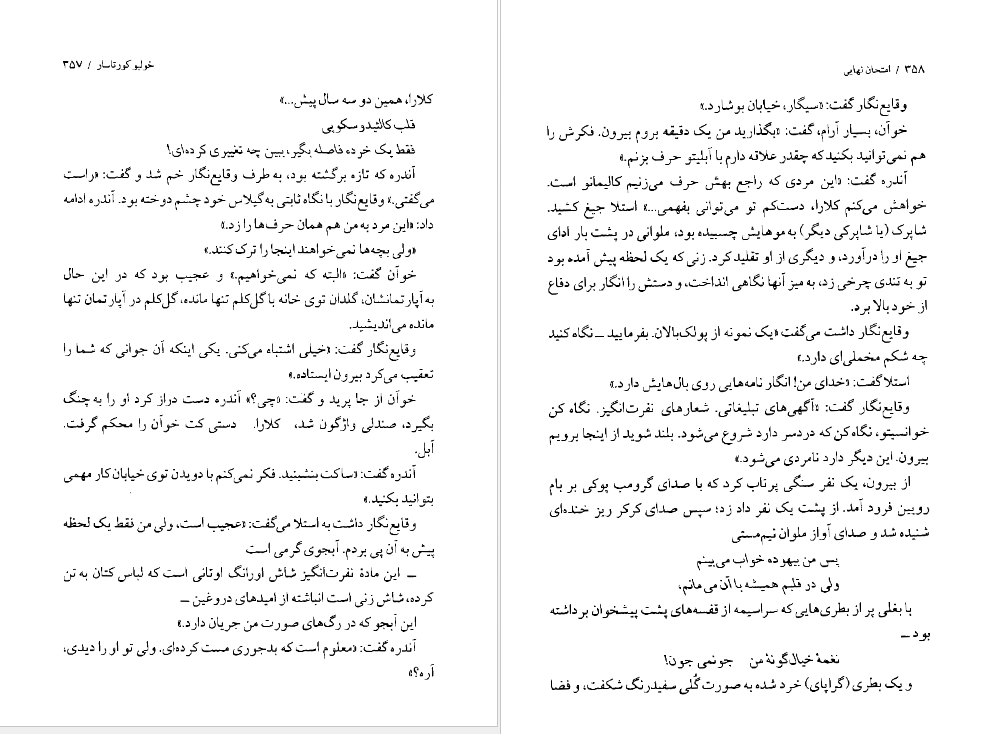 خولیو کورتاسار / ۳۵۷
کلارا، همین دو سه سال پیش...»
قلب کالئیدوسکوپی
فقط یک خرده فاصله بگیر، ببین چه تغییری کرده‌ای!
آندره که تازه برگشته بود، به طرف وقایع‌نگار خم شد و گفت: «راست
می‌گفتی.» وقایع‌نگار با نگاه ثابتی به گیلاس خود چشم دوخته بود. آندره ادامه
داد: «این مرد به من هم همان حرف‌ها را زد.»
«ولی بچه‌ها نمی‌خواهند اینجا را ترک کنند.»
خوآن گفت: «البته که نمی‌خواهیم.» و عجیب بود که در این حال
به آپارتمانشان، گلدان توی خانه با گل‌کلم تنها مانده، گل‌کلم در آپارتمان تنها
مانده می‌اندیشید.
وقایع‌نگار گفت: «خیلی اشتباه می‌کنی. یکی اینکه آن جوانی که شما را
تعقیب می‌کرد بیرون ایستاده.»
خوآن از جا پرید و گفت: «چی؟» آندره دست دراز کرد او را به چنگ
بگیرد، صندلی واژگون شد، کلارا. دستی کت خوآن را محکم گرفت.
آبل.
آندره گفت: «ساکت بنشینید. فکر نمی‌کنم با دویدن توی خیابان کار مهمی
بتوانید بکنید.»
وقایع‌نگار داشت به استلا می‌گفت: «عجیب است، ولی من فقط یک لحظه
پیش به آن پی بردم. آبجوی گرمی است
ــ این مادهٔ نفرت‌انگیز شاش اورانگ اوتانی است که لباس کتان به تن
کرده، شاش زنی است انباشته از امیدهای دروغین ــ
این آبجو که در رگ‌های صورت من جریان دارد.»
آندره گفت: «معلوم است که بدجوری مست کرده‌ای. ولی تو او را دیدی،
آره؟»
۳۵۸ / امتحان نهایی
وقایع‌نگار گفت: «سیگار، خیابان بوشارد.»
خوآن، بسیار آرام، گفت: «بگذارید من یک دقیقه بروم بیرون. فکرش را
هم نمی‌توانید بکنید که چقدر علاقه دارم با آبلیتو حرف بزنم.»
آندره گفت: «این مردی که راجع بهش حرف می‌زنیم کالیمانو است.
خواهش می‌کنم کلارا، دست‌کم تو می‌توانی بفهمی...» استلا جیغ کشید.
شاپرک (یا شاپرکی دیگر) به موهایش چسبیده بود، ملوانی در پشت بار ادای
جیغ او را درآورد، و دیگری از او تقلید کرد. زنی که یک لحظه پیش آمده بود
تو به تندی چرخی زد، به میز آنها نگاهی انداخت، و دستش را انگار برای دفاع
از خود بالا برد.
وقایع‌نگار داشت می‌گفت «یک نمونه از پولک‌بالان. بفرمایید ــ نگاه کنید
چه شکم مخملی‌ای دارد.»
استلا گفت: «خدای من! انگار نامه‌هایی روی بال‌هایش دارد.»
وقایع‌نگار گفت: «آگهی‌های تبلیغاتی. شعارهای نفرت‌انگیز. نگاه کن
خوانسیتو، نگاه کن که دردسر دارد شروع می‌شود. بلند شوید از اینجا برویم
بیرون. این دیگر دارد نامردی می‌شود.»
از بیرون، یک نفر سنگی پرتاب کرد که با صدای گرومب پوکی بر بام
رویین فرود آمد. از پشت یک نفر داد زد؛ سپس صدای کرکر ریز خنده‌ای
شنیده شد و صدای آواز ملوان نیم‌مستی
پس من بیهوده خواب می‌بینم
ولی در قلبم همیشه با آن می‌مانم،
با بغلی پر از بطری‌هایی که سراسیمه از قفسه‌های پشت پیشخوان برداشته
بود ــ
نغمهٔ خیال‌گونهٔ من جونمی جون!
و یک بطری (گراپای) خرد شده به صورت گُلی سفیدرنگ شکفت، و فضا